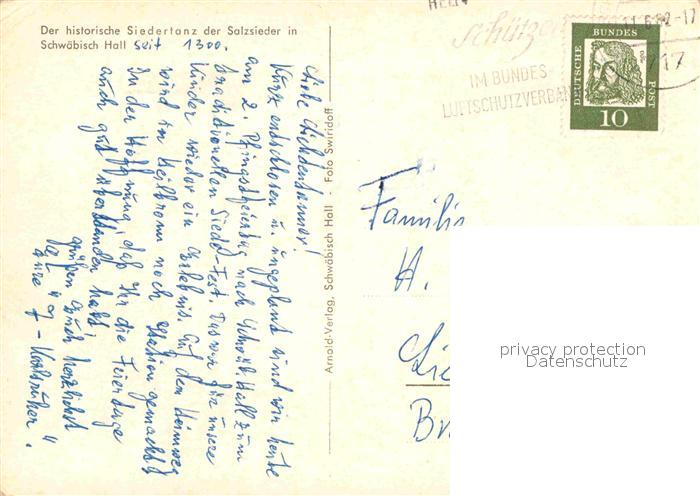 Der historische Siedertanz der Salzsieder in
Schwäbisch Hall seit 1300.
Liebe
kurz entschlossen u. ungeplant sind wir heute
am 2. Pfingstfeiertag nach Schwäb. Hall zum
traditionellen Sieder-Fest. Das war für unsere
Kinder wieder ein Erlebnis. Auf dem Heimweg
wird in Heilbronn noch Station gemacht.
In der Hoffnung, daß Ihr die Feiertage
auch gut überstanden habt,
grüßen Euch herzlichst
Eure 7 - Karlsruher.
Arnold-Verlag, Schwäbisch Hall · Foto Swiridoff
Schütze
IM BUNDES-
LUFTSCHUTZVERBAN
11.6.62-17
717
DEUTSCHE BUNDES POST
10
Familie
H.
Lie
Br
privacy protection
Datenschutz